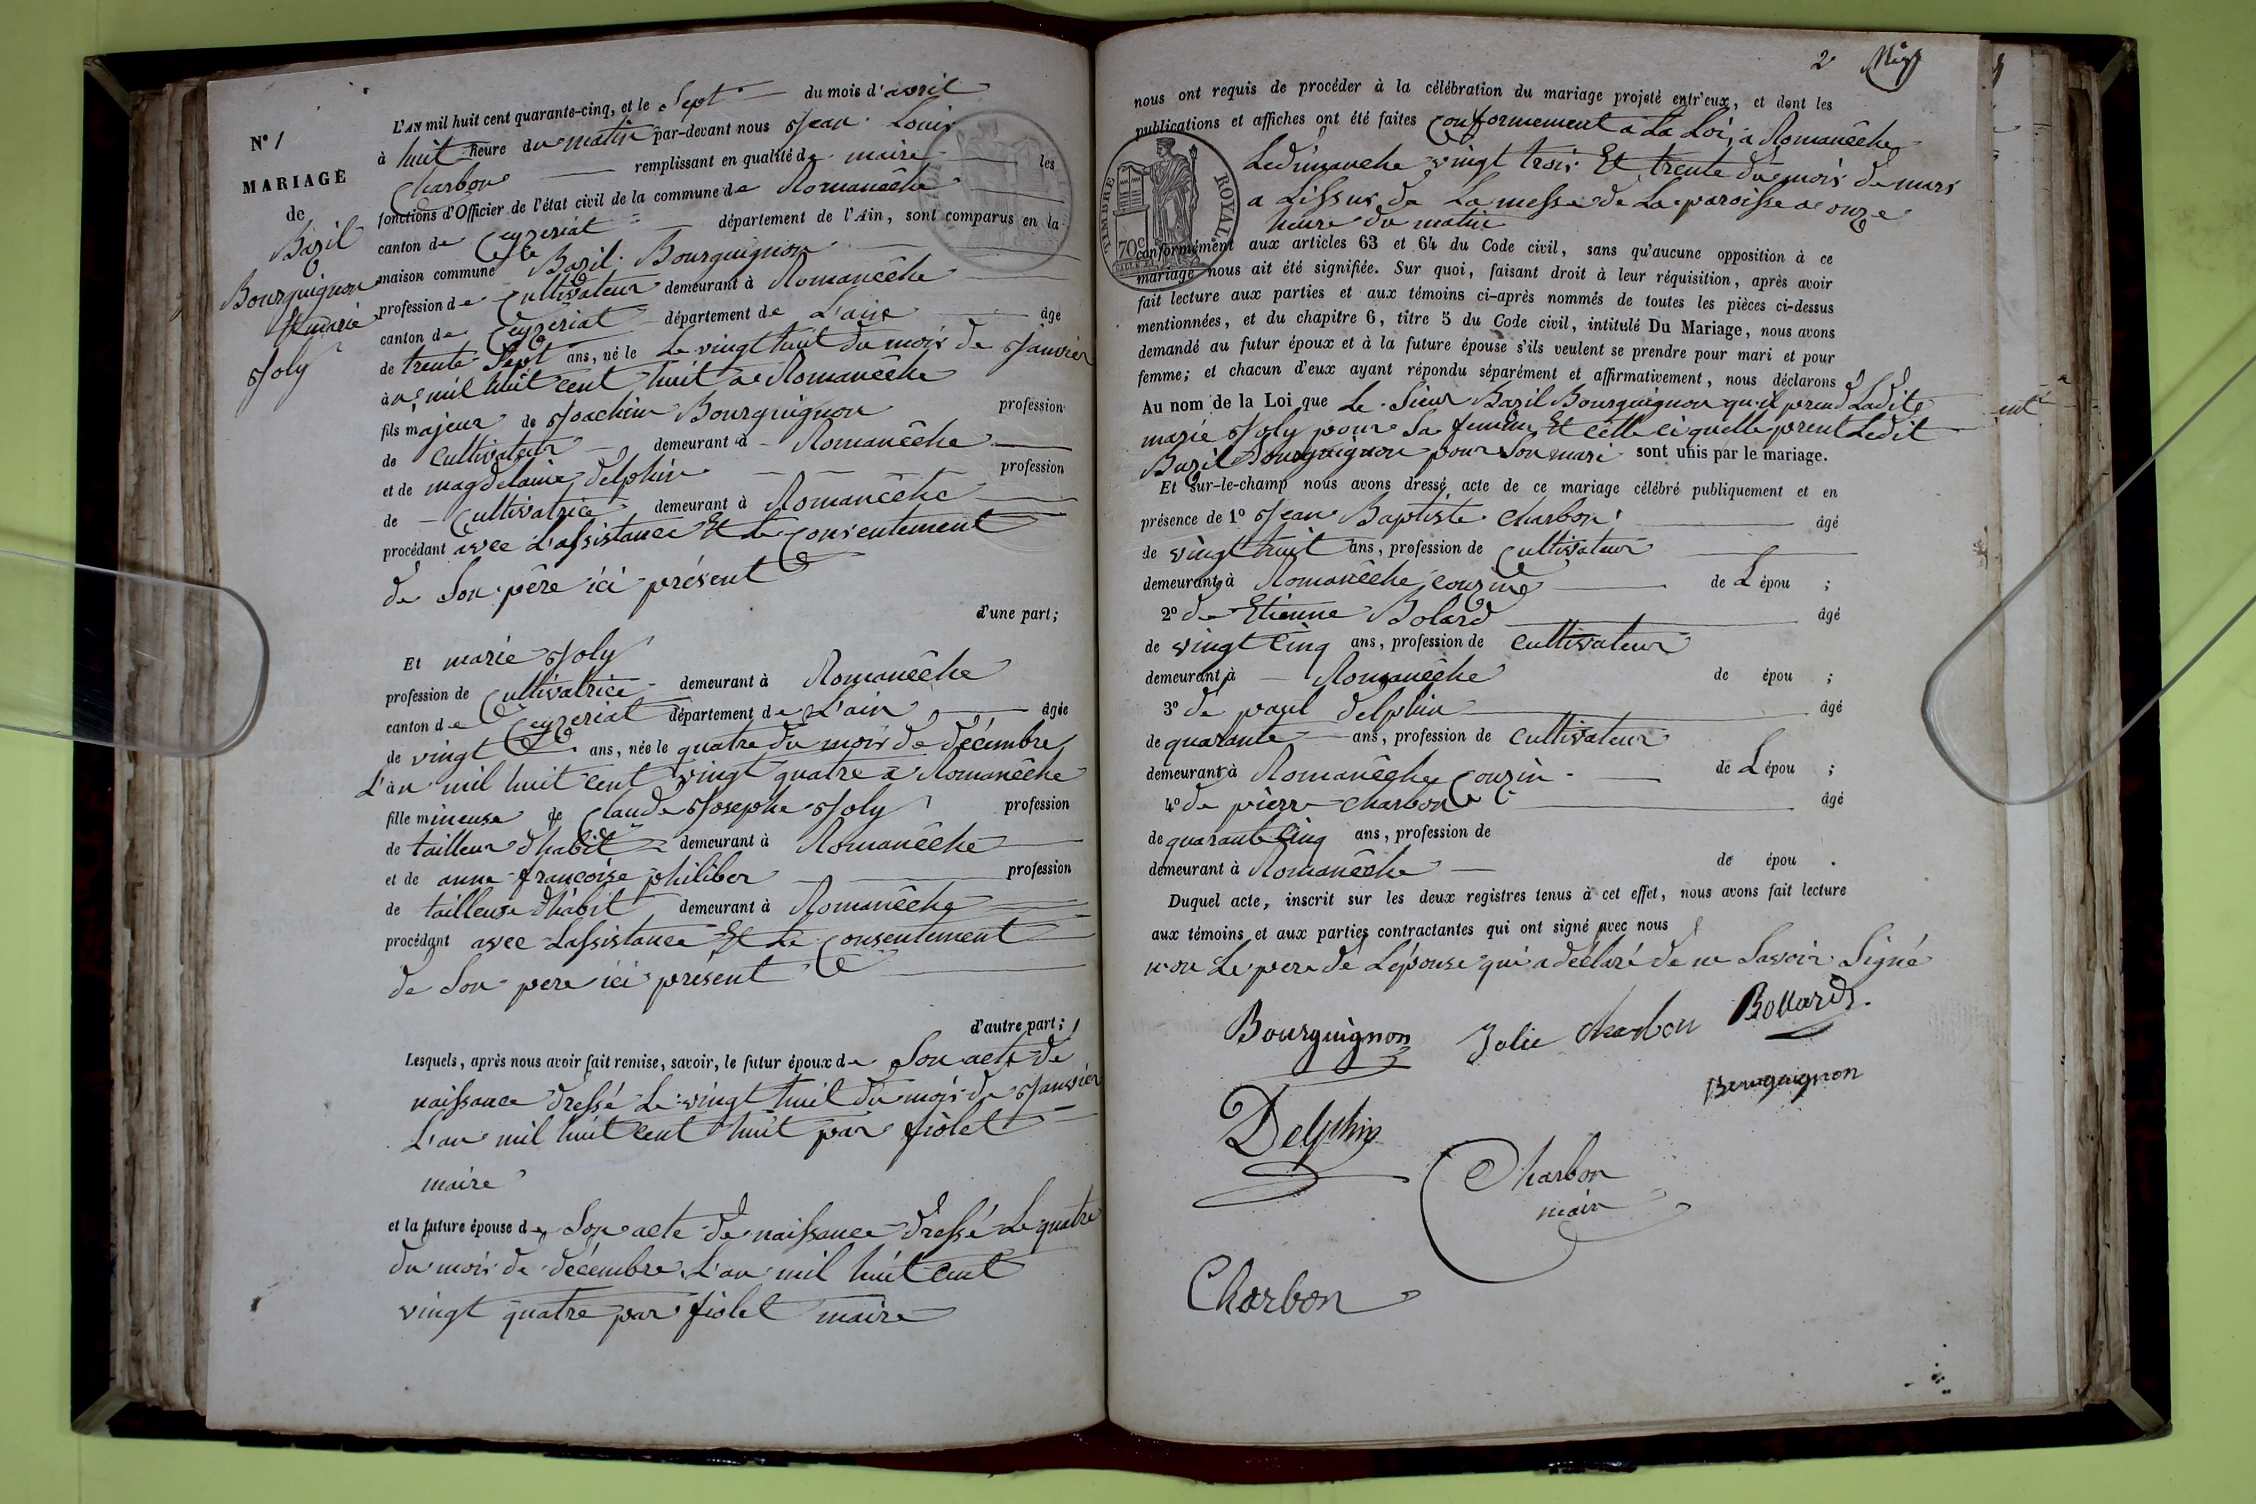 N° 1
MARIAGE
de
Bazil
Bourguignon
& marie
Joly
L'AN mil huit cent quarante-cinq, et le Sept du mois d'avril
à huit heure du matin par-devant nous Jean Louis
Charbon remplissant en qualité de maire les
fonctions d'Officier de l'état civil de la commune de Romanêche
canton de Ceyzeriat département de l'Ain, sont comparus en la
maison commune Bazil Bourguignon
profession de Cultivateur demeurant à Romanêche
canton de Ceyzeriat département de L'ain âgé
de trente Sept ans, né le Le vingt huit du mois de Janvier
an mil huit cent huit a Romanêche
fils majeur de Joachim Bourguignon profession
de Cultivateur demeurant à Romanêche
et de magdelaine delphin profession
de Cultivatrice demeurant à Romanêche
procédant avec L'assistance Et le Consentement
de Son père ici présent
d'une part;
Et marie Joly
profession de Cultivatrice demeurant à Romanêche
canton de Ceyzeriat département de L'ain âgée
de vingt ans, née le quatre du mois de décembre
L'an mil huit cent vingt quatre a Romanêche
fille mineuse de Claude Josephe Joly profession
de tailleur d'habit demeurant à Romanêche
et de anne françoise philiber profession
de tailleuse d'habit demeurant à Romanêche
procédant avec Lassistance Et Le Consentement
de Son pere ici présent
d'autre part;
Lesquels, après nous avoir fait remise, savoir, le futur époux de Son acte de
naissance dressé Le vingt huit du mois de Janvier
L'an mil huit cent huit par fiolet
maire
et la future épouse de Son acte de naissance dressé Le quatre
du mois de décembre L'an mil huit cent
vingt quatre par fiolet maire
2
nous ont requis de procéder à la célébration du mariage projeté entr'eux, et dont les
publications et affiches ont été faites Conformement a La Loi, a Romanêche
Le dimanche vingt trois Et trente du mois de mars
a Lissus de La messe de La paroisse a onze
heure du matin
TIMBRE ROYAL
70c
conformément aux articles 63 et 64 du Code civil, sans qu'aucune opposition à ce
mariage nous ait été signifiée. Sur quoi, faisant droit à leur réquisition, après avoir
fait lecture aux parties et aux témoins ci-après nommés de toutes les pièces ci-dessus
mentionnées, et du chapitre 6, titre 5 du Code civil, intitulé Du Mariage, nous avons
demandé au futur époux et à la future épouse s'ils veulent se prendre pour mari et pour
femme; et chacun d'eux ayant répondu séparément et affirmativement, nous déclarons
Au nom de la Loi que Le Sieur Bazil Bourguignon qu'il prend Ladite
marie Joly pour Sa femme Et celle ci quelle prent Ledit
Bazil Bourguignon pour Son mari sont unis par le mariage.
Et sur-le-champ nous avons dressé acte de ce mariage célébré publiquement et en
présence de 1° Jean Baptiste Charbon âgé
de vingt huit ans, profession de Cultivateur
demeurant à Romanêche couzine de L épou ;
2° de Etienne Bolard âgé
de vingt Cinq ans, profession de Cultivateur
demeurant à Romanêche de épou ;
3° de paul delphin âgé
de quarante ans, profession de Cultivateur
demeurant à Romanêche Couzin de L épou ;
4° de pierre Charbon âgé
de quarante Cinq ans, profession de
demeurant à Romanêche de épou .
Duquel acte, inscrit sur les deux registres tenus à cet effet, nous avons fait lecture
aux témoins et aux parties contractantes qui ont signé avec nous
non Le pere de L'épouse qui a déclaré de ne Savoir Signé
Bourguignon Jolie Charbon Bollard
Bourguignon
Delphin
Charbon
mair
Charbon